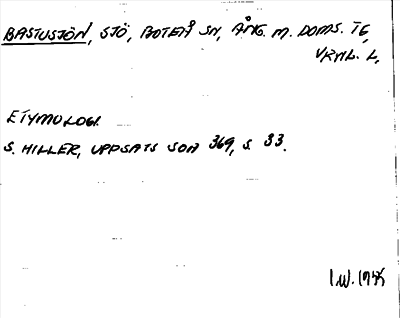 BASTUSJÖN, SJÖ, BOTEÅ SN, ÅNG. M. DOMS. TG,
VRML. L,
ETYMOLOGI.
S. HILLER, UPPSATS SOA 369, S. 33.
I.W. 1955